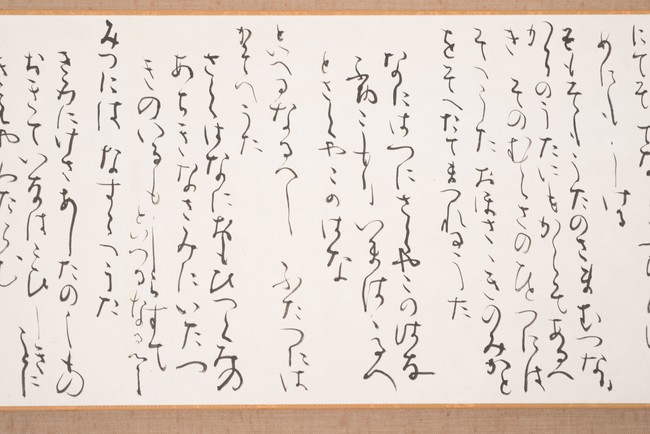 にてそてな
めにもしける
そもそもうたのさまむつなり
からのうたにもかくそあるへ
き そのむくさのひとつには
そへうた おほささきのみかと
をそへたてまつれるうた
なにはつにさくやこのはな
ふゆこもりいまははるへ
とさくやこのはな
といへるなるへし ふたつには
かそへうた
さくはなにおもひつくみの
あちきなさみにいたつ
きのいるもしらすて
といへるなるへし
みつには なすらへうた
きみにけさあしたのしもの
おきていなはこひしきことに
きえやわたらむ